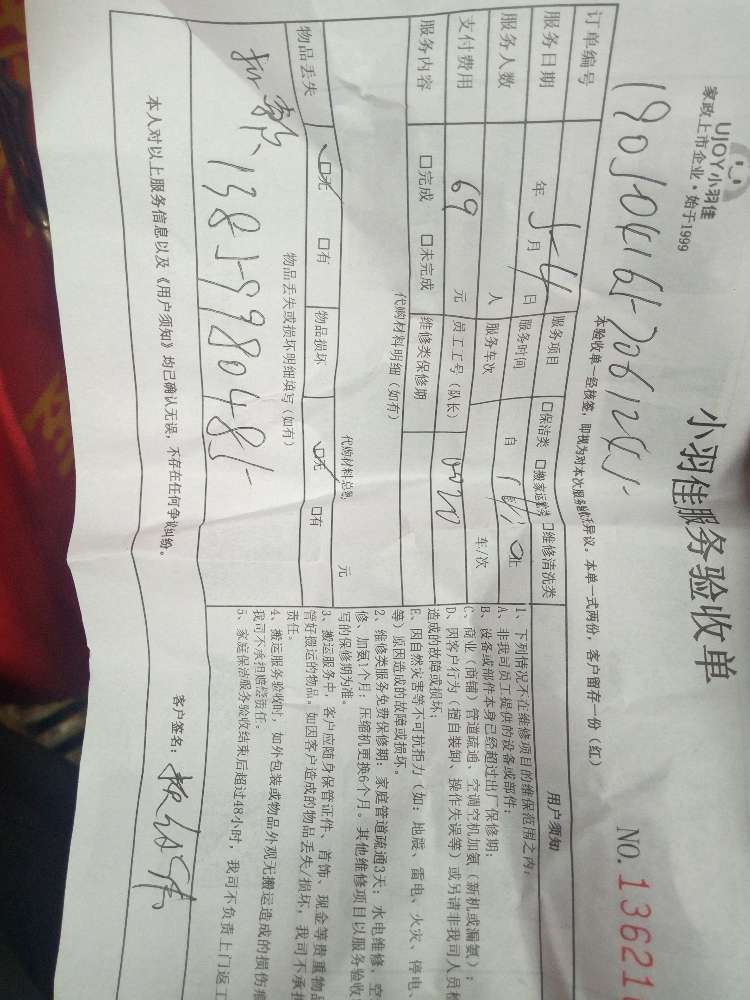 UJOY小羽佳
家政上市企业·始于1999
小羽佳服务验收单
NO.13621
本验收单一经核签，即视为对本次服务无异议。本单一式两份，客户留存一份（红）
订单编号
服务日期 年 5 月 4 日 服务项目 □保洁类 □搬家运输类 □维修清洗类
服务人数 人 服务时间 自 止
支付费用 69 元 服务车次 车/次
服务内容 □完成 □未完成 员工工号（队长）
维修类保修期
代购材料明细（如有）
代购材料总额 元
物品丢失 □无 □有 物品损坏 □无 □有
物品丢失或损坏明细填写（如有）
13859980485
本人对以上服务信息以及《用户须知》均已确认无误，不存在任何争议纠纷。
客户签名：
用户须知
1、下列情况不在维修项目的维保范围之内：
A、非我司员工提供的设备或部件；
B、设备或部件本身已经超过出厂保修期；
C、商业（商铺）管道疏通、空调空机加氨（新机或漏氨）；
D、因客户行为（擅自装卸、操作失误等）或另请非我司人员
造成的故障或损坏；
E、因自然灾害等不可抗拒力（如：地震、雷电、火灾、停电、
等）原因造成的故障或损坏。
2、维修类服务免费保修期：家庭管道疏通3天；水电维修、空
修、加氨1个月；压缩机更换6个月。其他维修项目以服务验收
写的保修期为准。
3、搬运服务中，客户应随身保管证件、首饰、现金等贵重物品
管好搬运的物品。如因客户造成的物品丢失/损坏，我司不承担
责任。
4、搬运服务验收时，如外包装或物品外观无搬运造成的损伤痕
我司不承担赔偿责任。
5、家庭保洁服务验收结束后超过48小时，我司不负责上门返工